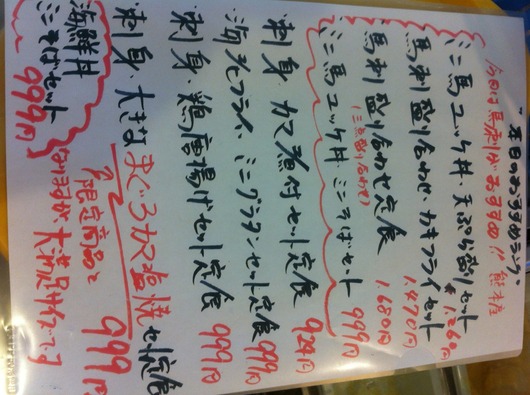 本日のおすすめランチ
今日は馬刺しがおすすめ!! 熊本産
ミニ馬ユッケ丼・天ぷら盛りセット 1.260円
馬刺盛り合わせ・カキフライセット 1.470円
馬刺盛り合わせ定食 1.680円
(三点盛り合わせ)
ミニ馬ユッケ丼 ミニそばセット 999円
刺身・カマ煮付セット定食 924円
海老フライ・ミニグラタンセット定食 999円
刺身・鶏唐揚げセット定食 999円
刺身・大きなまぐろカマ塩焼セット定食 999円
海鮮丼
ミニそばセット 999円
限定商品と
なりますが、大満足サイズです